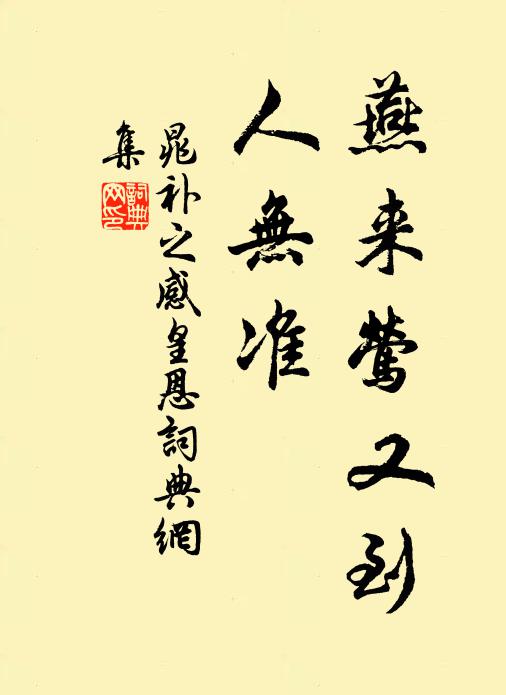 燕来鶯又到
人無准
晁补之感皇恩詞典網
集
詞典
网印